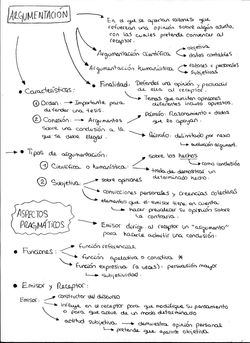 ARGUMENTACIÓN
En el que se aportan razones que
refuerzan una opinión sobre algún asunto
con las cuales pretende convencer al
receptor.
Argumentación Científica
objetiva
datos contables
Argumentación Humanística
valores y personales
subjetivas
• Características:
• Finalidad: Defender una opinión y persuadir
de ella al receptor.
Temas que susciten opiniones
diferentes incluso opuestas.
① Orden → Importante para
defender una tesis.
② Conexión → Argumentos
sobre una conclusión a la
que se debe llegar.
Párrafo: Razonamiento + datos
que lo apoyan.
Párrafo: delimitado por nexo
evolución argument.
• Tipos de argumentación:
① Científica o humanística
sobre los hechos
como contables
trata de demostrar un
determinado hecho
② Subjetiva
sobre opiniones
convicciones personales y creencias colectivas
elementos que el emisor tiene en cuenta
hacer prevalecer su opinión sobre
la contraria.
ASPECTOS
PRAGMÁTICOS
Emisor dirige al receptor un "argumento"
para hacerle admitir una conclusión.
• Funciones:
función referencial
función apelativa o conativa *
función expresiva (a veces): persuasión mayor
subjetividad.
• Emisor y Receptor:
Emisor:
constructor del discurso
Influye en el receptor para que modifique su pensamiento
o para que actúe de un modo determinado
actitud subjetiva → demuestra opinión personal
pretende que aparente objetiva.